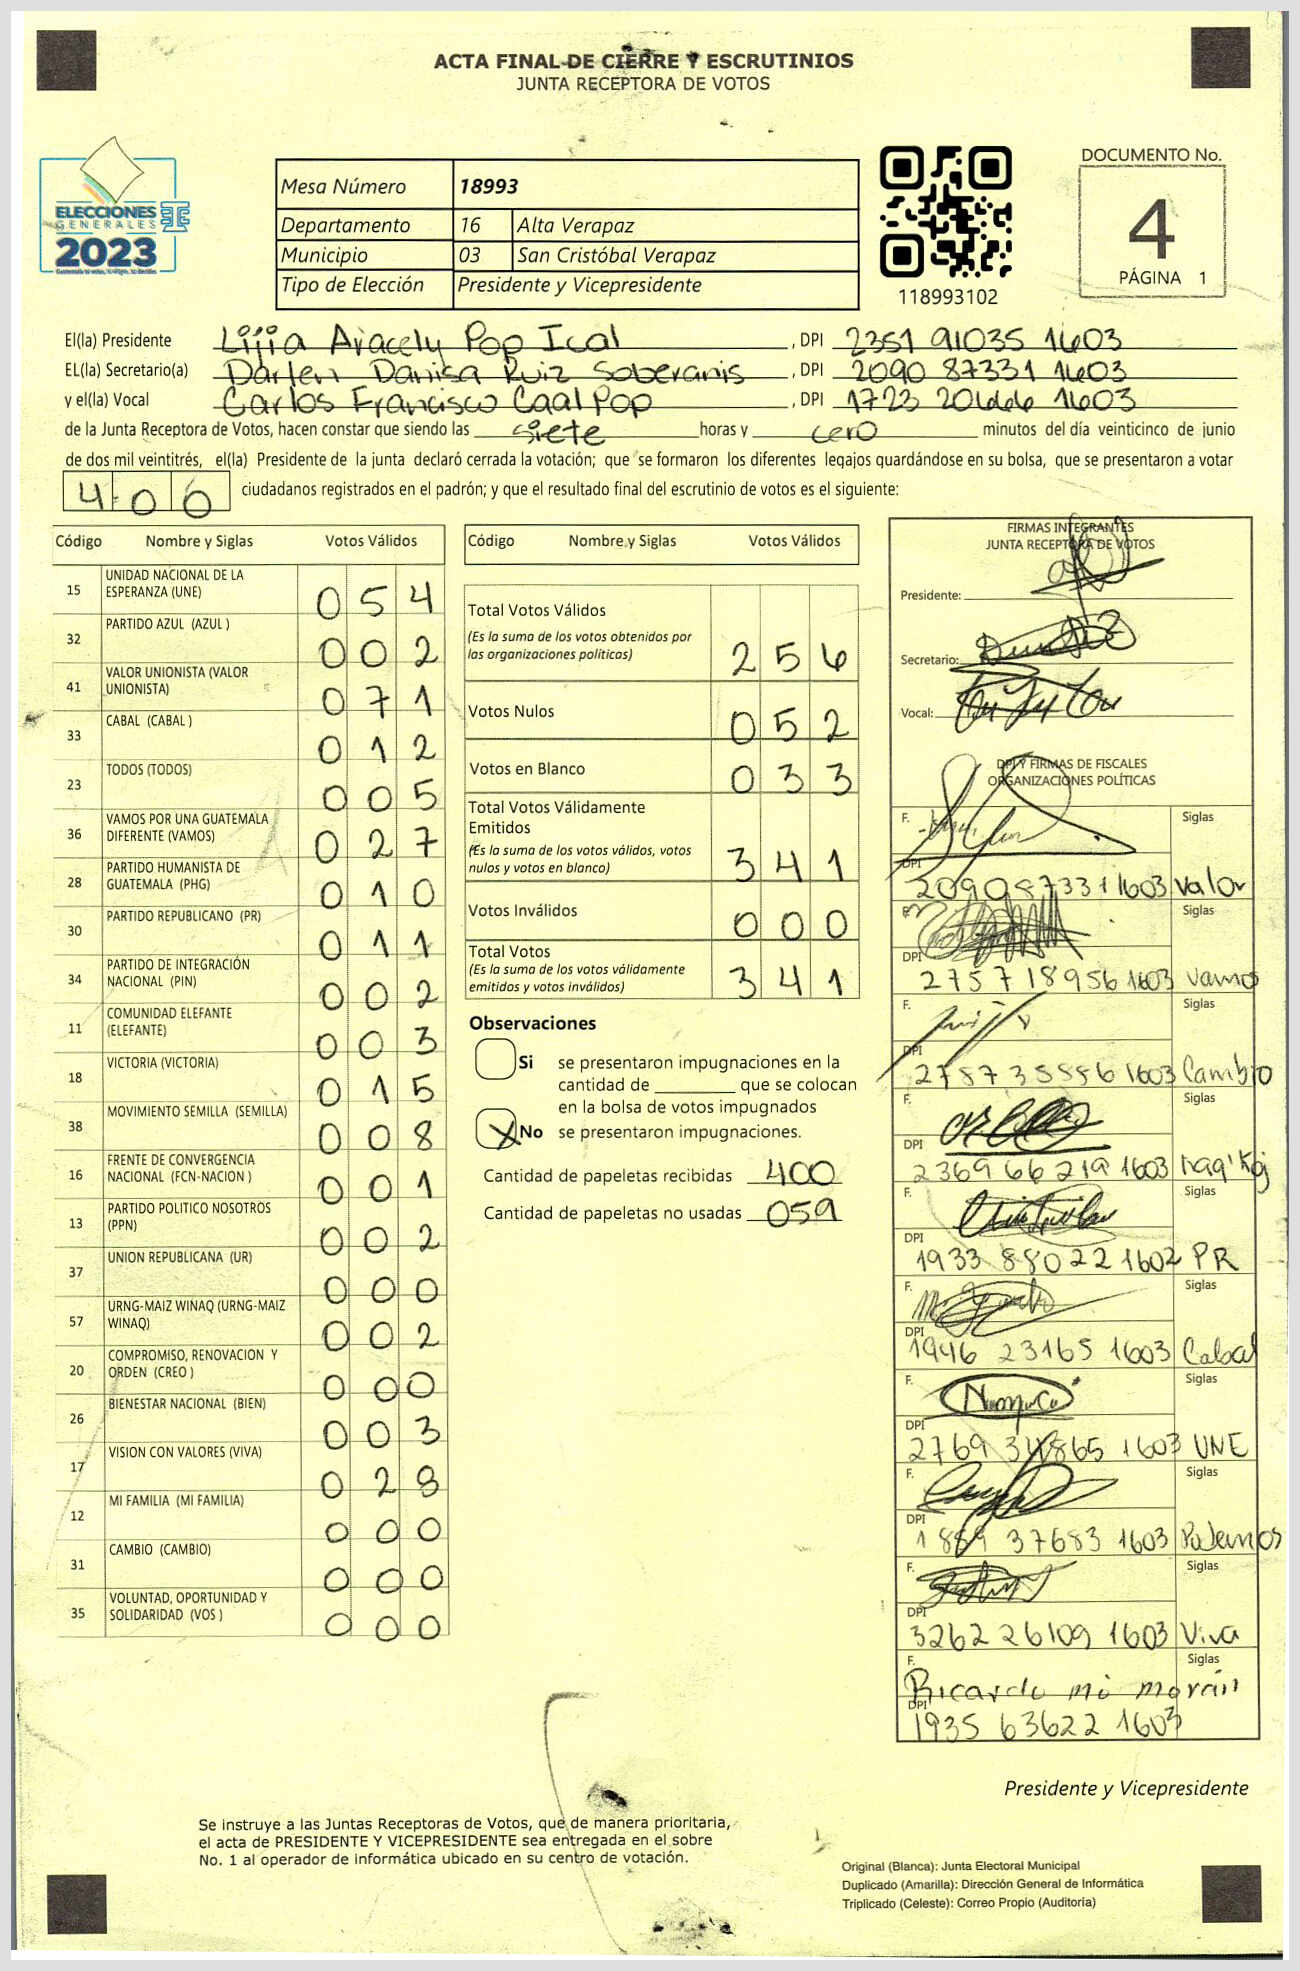 ACTA FINAL DE CIERRE Y ESCRUTINIOS
JUNTA RECEPTORA DE VOTOS
ELECCIONES
GENERALES
2023
Mesa Número 18993
Departamento 16 Alta Verapaz
Municipio 03 San Cristóbal Verapaz
Tipo de Elección Presidente y Vicepresidente
118993102
DOCUMENTO No.
4
PÁGINA 1
El(la) Presidente Lijia Aracely Pop Ical , DPI 2351 91035 1603
EL(la) Secretario(a) Darlen Danisa Ruiz Soberanis , DPI 2090 87331 1603
y el(la) Vocal Carlos Francisco Caal Pop , DPI 1723 20666 1603
de la Junta Receptora de Votos, hacen constar que siendo las siete horas y cero minutos del día veinticinco de junio
de dos mil veintitrés, el(la) Presidente de la junta declaró cerrada la votación; que se formaron los diferentes legajos quardándose en su bolsa, que se presentaron a votar
400 ciudadanos registrados en el padrón; y que el resultado final del escrutinio de votos es el siguiente:
Código Nombre y Siglas Votos Válidos
15 UNIDAD NACIONAL DE LA ESPERANZA (UNE) 054
32 PARTIDO AZUL (AZUL ) 002
41 VALOR UNIONISTA (VALOR UNIONISTA) 071
33 CABAL (CABAL ) 012
23 TODOS (TODOS) 005
36 VAMOS POR UNA GUATEMALA DIFERENTE (VAMOS) 027
28 PARTIDO HUMANISTA DE GUATEMALA (PHG) 010
30 PARTIDO REPUBLICANO (PR) 011
34 PARTIDO DE INTEGRACIÓN NACIONAL (PIN) 002
11 COMUNIDAD ELEFANTE (ELEFANTE) 003
18 VICTORIA (VICTORIA) 015
38 MOVIMIENTO SEMILLA (SEMILLA) 008
16 FRENTE DE CONVERGENCIA NACIONAL (FCN-NACION ) 001
13 PARTIDO POLITICO NOSOTROS (PPN) 002
37 UNION REPUBLICANA (UR) 000
57 URNG-MAIZ WINAQ (URNG-MAIZ WINAQ) 002
20 COMPROMISO, RENOVACION Y ORDEN (CREO ) 000
26 BIENESTAR NACIONAL (BIEN) 003
17 VISION CON VALORES (VIVA) 028
12 MI FAMILIA (MI FAMILIA) 000
31 CAMBIO (CAMBIO) 000
35 VOLUNTAD, OPORTUNIDAD Y SOLIDARIDAD (VOS ) 000
Código Nombre y Siglas Votos Válidos
Total Votos Válidos
(Es la suma de los votos obtenidos por
las organizaciones politicas) 256
Votos Nulos 052
Votos en Blanco 033
Total Votos Válidamente
Emitidos
(Es la suma de los votos válidos, votos
nulos y votos en blanco) 341
Votos Inválidos 000
Total Votos
(Es la suma de los votos válidamente
emitidos y votos inválidos) 341
Observaciones
Si se presentaron impugnaciones en la
cantidad de que se colocan
en la bolsa de votos impugnados
X No se presentaron impugnaciones.
Cantidad de papeletas recibidas 400
Cantidad de papeletas no usadas 059
FIRMAS INTEGRANTES
JUNTA RECEPTORA DE VOTOS
Presidente:
Secretario:
Vocal:
DPI Y FIRMAS DE FISCALES
ORGANIZACIONES POLÍTICAS
F. Siglas
DPI 2090 87331 1603 Valor
F. Siglas
DPI 2757 18956 1603 Vamos
F. Siglas
DPI 2787 35556 1603 Cambio
F. Siglas
DPI 2369 66219 1603
F. Siglas
DPI 1933 88022 1602 PR
F. Siglas
DPI 1946 23165 1603 Cabal
F. Siglas
DPI 2769 34865 1603 UNE
F. Siglas
DPI 1889 37683 1603 Podemos
F. Siglas
DPI 3262 26109 1603 Viva
F. Siglas
Ricardo mo morán
DPI 1935 63622 1603
Presidente y Vicepresidente
Se instruye a las Juntas Receptoras de Votos, que de manera prioritaria,
el acta de PRESIDENTE Y VICEPRESIDENTE sea entregada en el sobre
No. 1 al operador de informática ubicado en su centro de votación.
Original (Blanca): Junta Electoral Municipal
Duplicado (Amarilla): Dirección General de Informática
Triplicado (Celeste): Correo Propio (Auditoría)